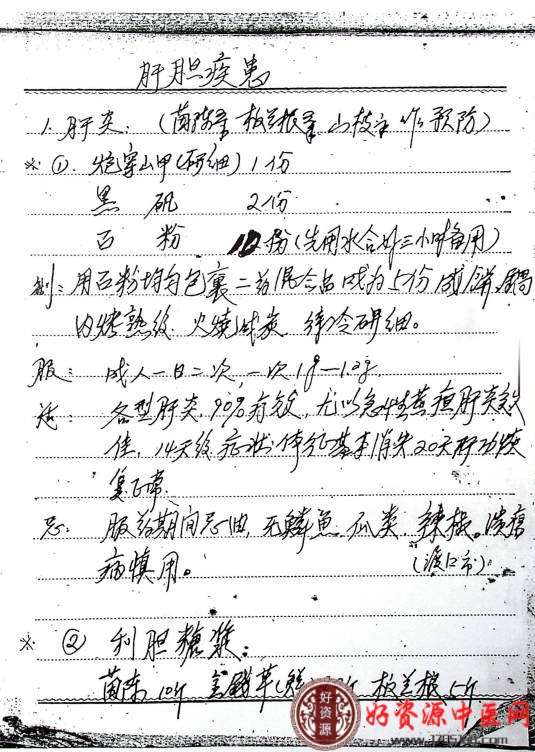 肝胆疾患
1. 肝炎：（茵陈 板兰根 山枝 作预防）
※ ① 炮穿山甲（研细）1份
黑矾 2份
白粉 10份（先用水合好三小时备用）
制：用白粉均匀包裹二药混合品 成为5份 成饼，锅
内烤熟后 火烧成炭 待冷研细。
服：成人一日二次，一次1g—1.2g.
适：各型肝炎，90%有效，尤以急性黄疸肝炎效
佳，14天后症状体征基本消失20天肝功恢
复正常.
忌：服药期间忌油，无鳞鱼、瓜类、辣椒。溃疡
病慎用。（渡口市）
※ ② 利胆糖浆：
茵陈 10斤 金钱草（鲜） 板兰根 5斤
好资源
中医
好资源中医网